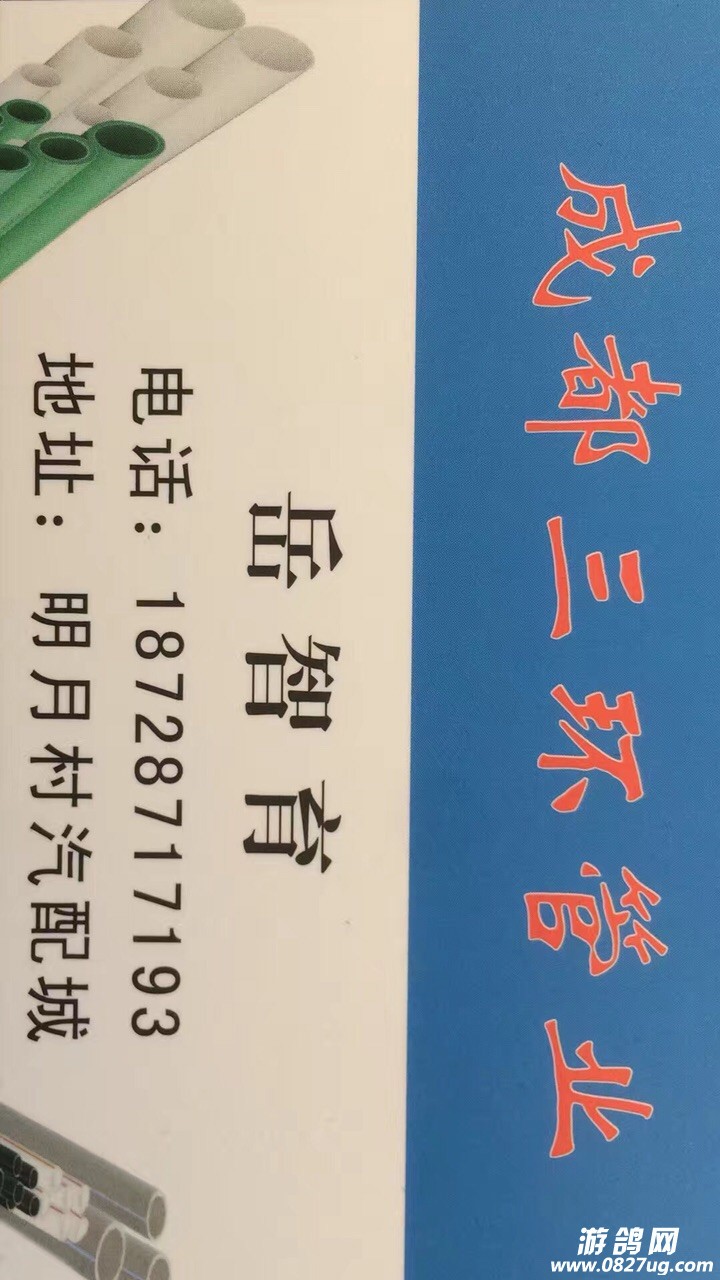 成都三环管业
岳智育
电话：18728717193
地址：明月村汽配城
游鸽网
www.0827ug.com